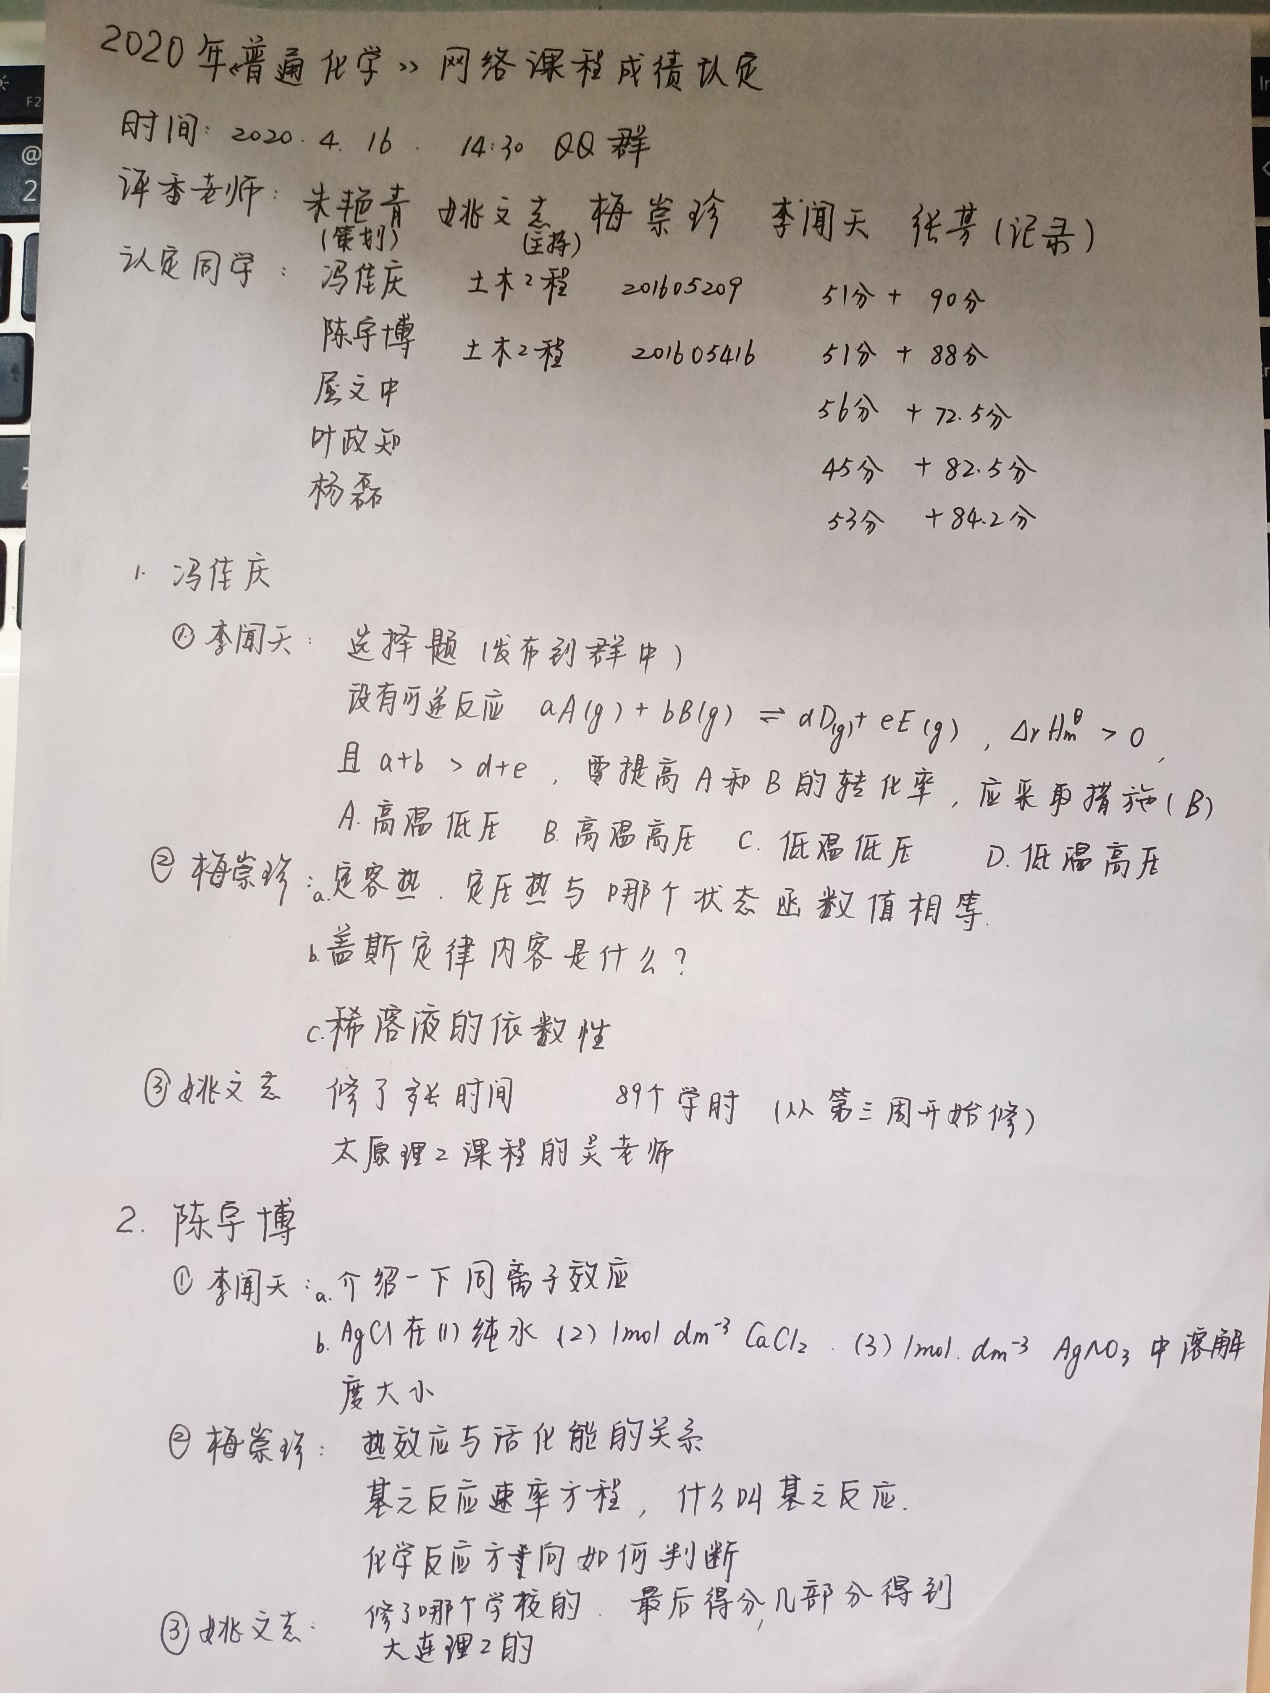 2020年《普通化学》网络课程成绩认定
时间: 2020.4.16. 14:30 QQ群
评委老师: 朱艳青 姚文志 梅崇珍 李闻天 张芳(记录)
(策划) (主持)
认定同学: 冯佳庆 土木工程 201605209 51分 + 90分
陈宇博 土木工程 201605416 51分 + 88分
屈文中 56分 + 72.5分
叶政知 45分 + 82.5分
杨磊 53分 + 84.2分
1. 冯佳庆
① 李闻天: 选择题 (发布到群中)
设有可逆反应 aA(g) + bB(g) ⇌ dD(g) + eE(g), ΔrHmθ > 0,
且 a+b > d+e, 要提高A和B的转化率, 应采取措施(B)
A. 高温低压 B. 高温高压 C. 低温低压 D. 低温高压
② 梅崇珍: a. 定容热. 定压热与哪个状态函数值相等.
b. 盖斯定律内容是什么?
c. 稀溶液的依数性
③ 姚文志 修了多长时间 89个学时 (从第三周开始修)
太原理工课程的吴老师
2. 陈宇博
① 李闻天: a. 介绍一下同离子效应
b. AgCl在(1)纯水 (2) 1mol dm⁻³ CaCl₂. (3) 1mol. dm⁻³ AgNO₃ 中溶解
度大小
② 梅崇珍: 热效应与活化能的关系
基元反应速率方程, 什么叫基元反应.
化学反应方向如何判断
③ 姚文志: 修了哪个学校的. 最后得分, 几部分得到
大连理工的